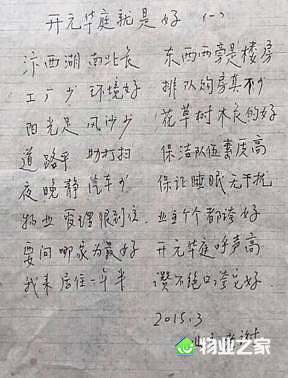 开元华庭就是好 (一)
汾西湖南北长 东西两旁是楼房
工厂少 环境好 排队购房真不少
阳光足 风沙少 花草树木长的好
道路平 勤打扫 保洁队伍素质高
夜晚静 汽车少 保证睡眠无干扰
物业管理很到位 业主个个都夸好
要问哪家为最好 开元华庭呼声高
我来居住一年半 赞不绝口说它好
2015.3
物业之家